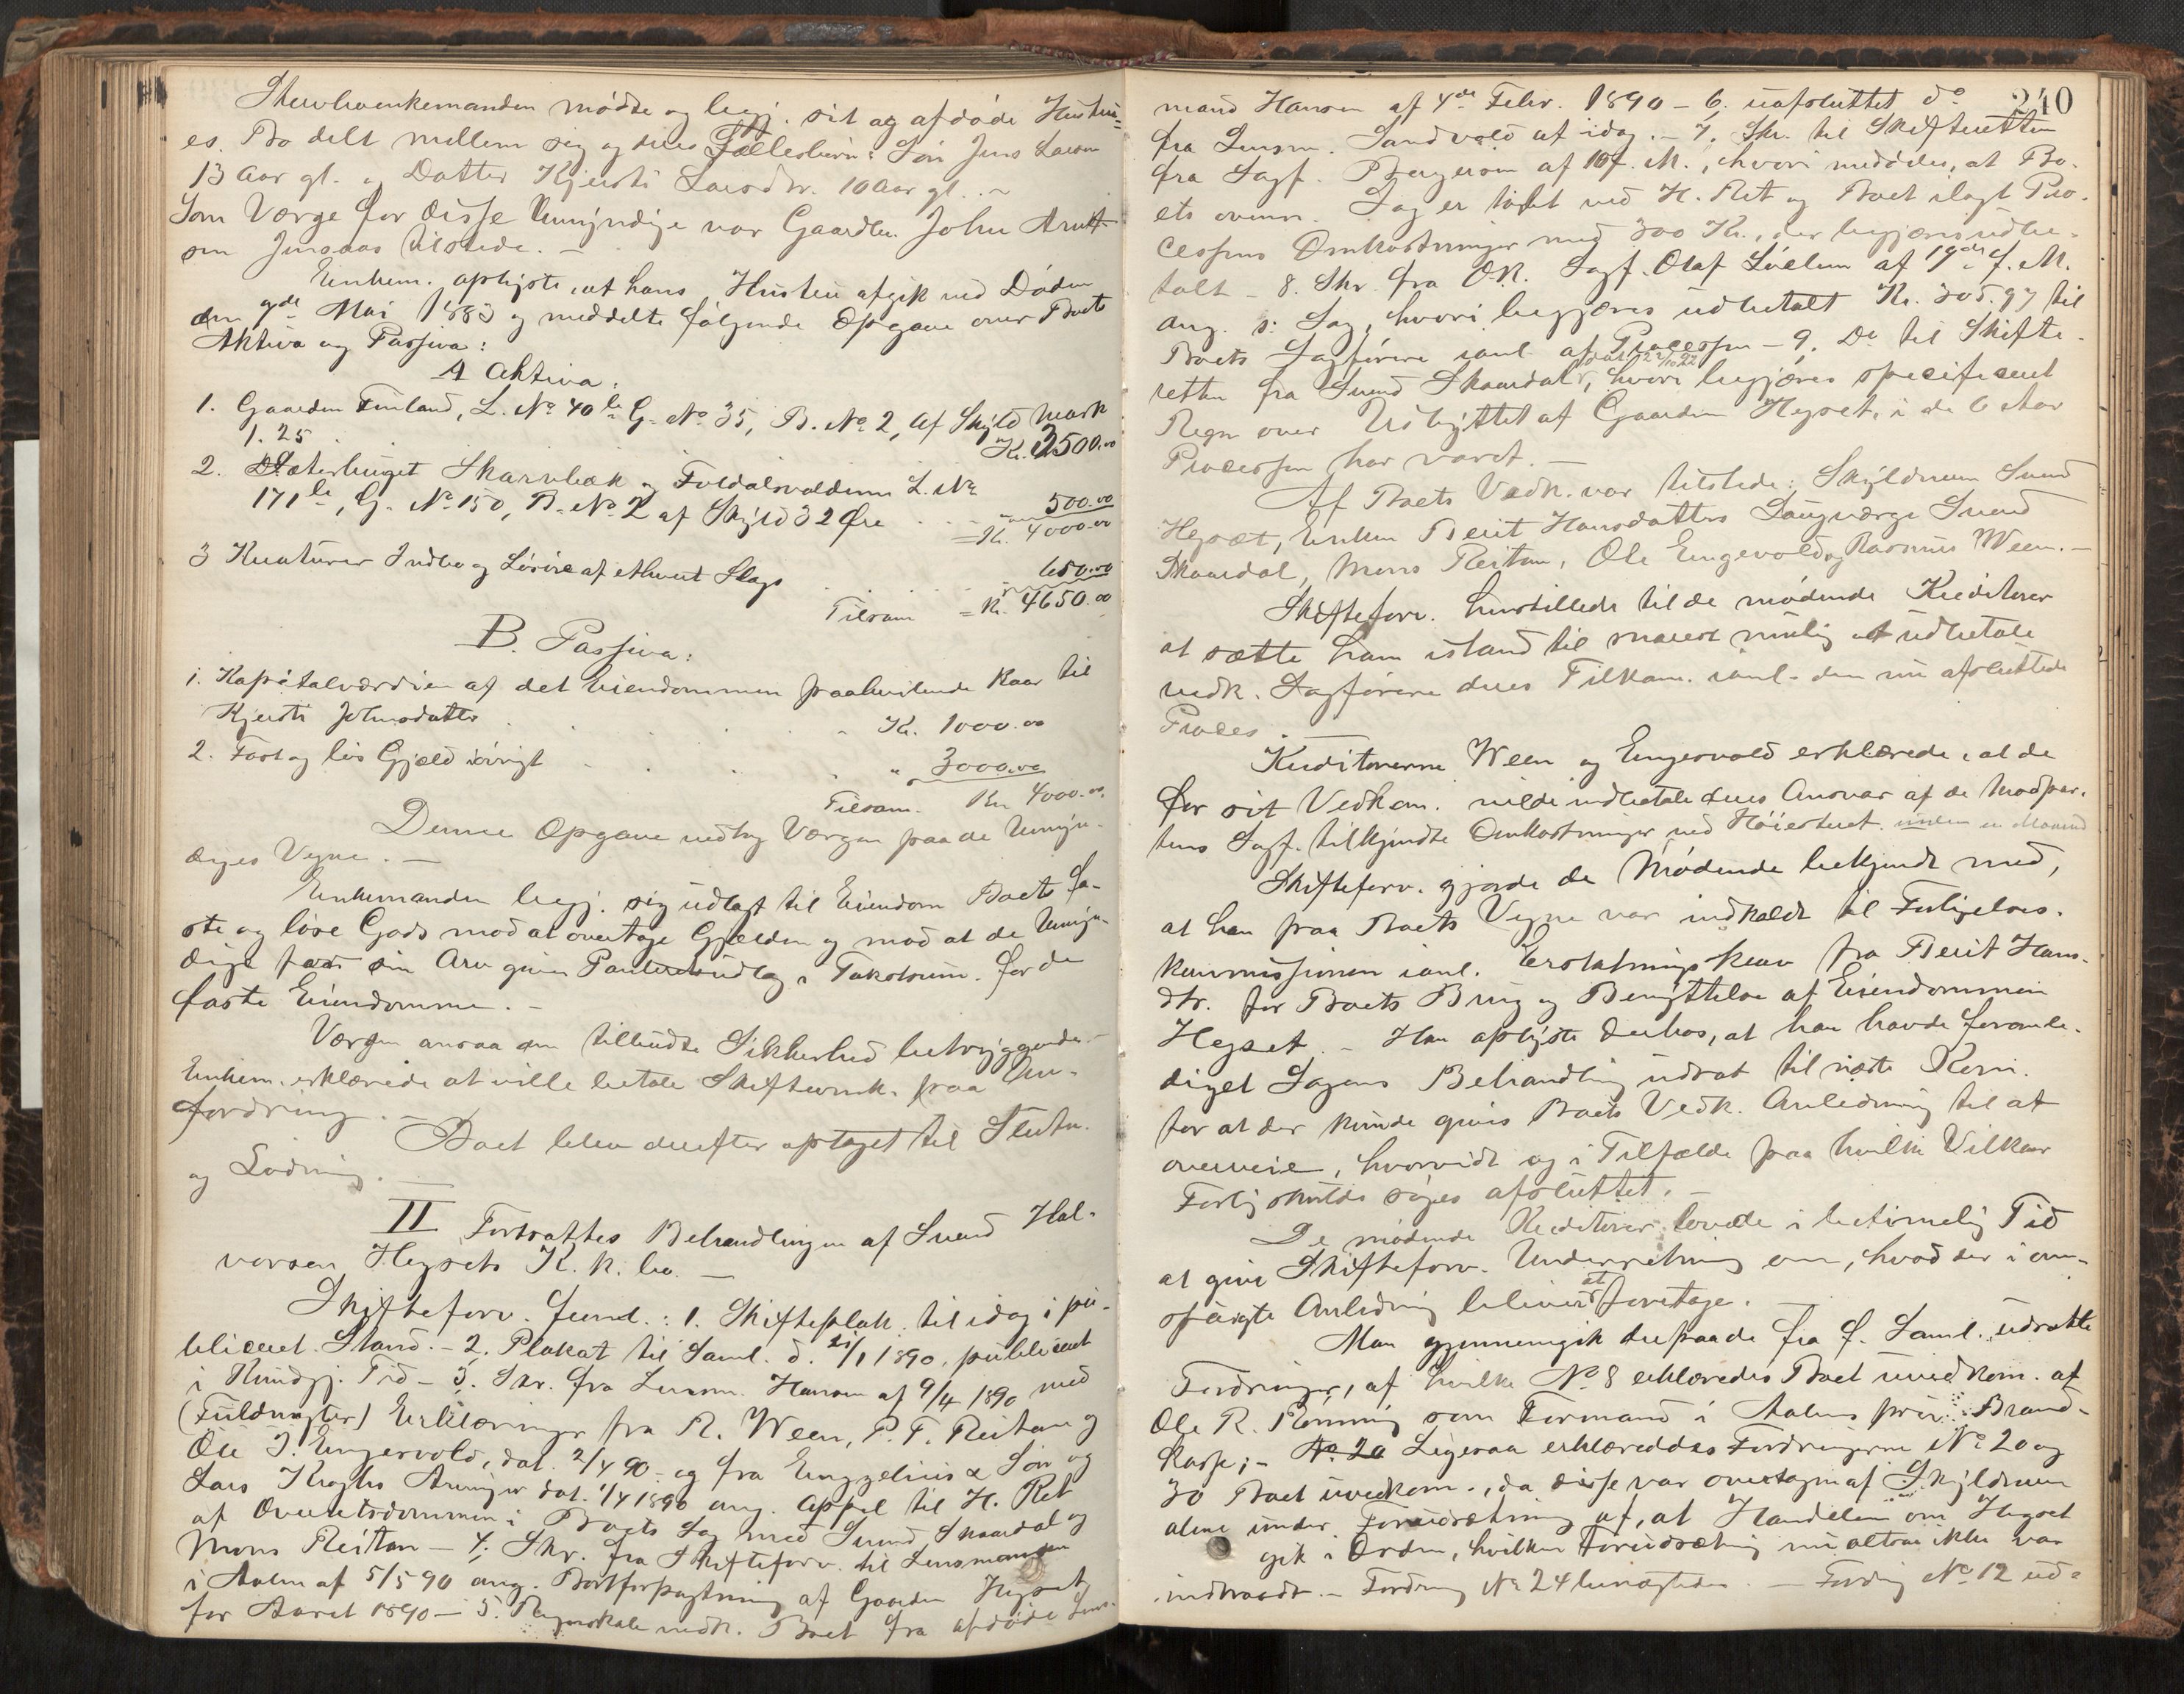 mødte og begj. sit og afdøde Hustru-
es Bo delt mellem sig og deres Fællesbørn: Søn Jens Larsen
13 Aar gl. og Datter Kjersti Larsdtr. 10 Aar gl. -
Som Værge for disse Umyndige var Gaardbr. John Arnt-
sen Jensaas tilstede. -
Enkem. oplyste, at hans Hustru afgik ved Døden
den Mai 1883 og meddelte følgende Opgave over Boets
Aktiva og Passiva:
A Aktiva:
1. Gaarden L. No 40 G. No 35, B. No 2, af Skyld Mark
1.25 . Kr. 3500.00
2. Sæterbruget Skarvbæk i Foldalsvoldene L. No
171 , G. No 150, B. No 2 af Skyld 32 Øre . . . 500.00
= Kr. 4000.00
3 Kreaturer Indbo og Løsøre af ethvert Slags . . . 650.00
Tilsam = Kr. 4650.00
B. Passiva:
1. Kapitalværdien af det Eiendommen paahvilende Kaar til
Kjersti Johnsdatter . . . Kr. 1000.00
2. Fast og løs Gjæld iøvrigt . . . " 3000.00
Tilsam. Kr 4000.00.
Denne Opgave vedtog Værgen paa de Umyn-
diges Vegne. -
Enkemanden begj. sig udlagt til Eiendom Boets fa-
ste og løse Gods mod at overtage Gjælden og mod at de Umyn-
dige for sin Arv gives Panteretsudlæg i Taxtsum. for de
faste Eiendomme. -
Værgen ansaa den tilbudte Sikkerhed betryggende. -
Enkem. erklærede at ville betale Skifteomk. paa An-
fordring. -
Boet blev derefter optaget til Slutn.
og Lodning. -
II Fortsattes Behandlingen af Svend Hal-
vorsen Hegsets K. k. bo. -
Skifteforv. freml.: 1. Skifteplak. til idag i pu-
bliceret Stand. - 2. Plakat til Saml. d. 21/1 1890, publiceret
i Kundgj. Tid - 3. Skr. fra Lensm. Hansen af 9/4 1890 med
(Fuldmagter) Erklæringer fra R. Ween, P. T. Reitan og
Ole J. Engesvold, dat. 2/4 90 - og fra Engzelius & Søn og
Lars Kroghs Arvinger dat. 1/4 1890 ang. Appel til H. Ret
af Overretsdommen i Boets Sag med Svend Skaardal og
Mons Reitan - 4. Skr. fra Skifteforv. til Lensmanden
i Aalen af 5/5 90 ang. Bortforpagtning af Gaarden Hegset
for Aaret 1890 - 5. Regnskab vedk. Boet fra afdøde Lens-
240
mand Hansen af 4de Febr. 1890 - 6. uafsluttet do
fra Lensm. Sandvold af idag. - 7. Skr. til Skifteretten
fra Sagf. Bergersen af 10 f. M., hvori meddeles, at Bo-
ets ovenn. Sag er tabt ved H. Ret og Boet ilagt Pro-
cessens Omkostninger med 300 Kr., der begjæres udbe-
talt - 8. Skr. fra O.R. Sagf. Olaf af 19de f. M.
ang. s: Sag, hvori begjæres udbetalt Kr. 305.97 til
Boets Sagførere i anl. af Processen - 9. Do til Skifte-
retten fra Svend Skaardal, hvori begjæres specificeret
Regn over Udbyttet af Gaarden Hegset, i de 6 Aar
Processen har varet. -
Af Boets Vedk. var tilstede: Skyldneren Svend
Hegset, Enken Berit Hansdatters Laugværge Svend
Skaardal, Mons Reitan, Ole Engesvold og Rasmus Ween. -
Skifteforv. henstillede til de mødende Kreditorer
at sætte ham istand til snarest mulig at udbetale
vedk. Sagførere deres Tilkom. i anl. den nu afsluttede
Proces. -
Kreditorerne Ween og Engesvold erklærede, at de
for sit Vedkom. vilde indbetale deres Ansvar af de Modpar-
tens Sagf. tilkjendte Omkostninger ved Høiesteret. inden en Maaned
Skifteforv. gjorde de Mødende bekjendt med,
at han paa Boets Vegne var indkaldt til Forligelses-
kommissionen i anl. Erstatningskrav fra Berit Hans-
dtr. for Boets Brug og Benyttelse af Eiendommen
Hegset. - Han oplyste derhos, at han havde foranle-
diget Sagens Behandling udsat til næste Kom.
for at der kunde gives Boets Vedk. Anledning til at
overveie, hvorvidt og i Tilfælde paa hvilke Vilkaar
Forlig skulde søges afsluttet. -
De mødende Kreditorer lovede i betimelig Tid
at give Skifteforv. Underretning om, hvad der i om-
spurgte Anledning bliver at foretage. -
Man gjennemgik derpaa de fra f. Saml. udsatte
Fordringer, af hvilke No 8 erklæredes Boet uvedkom. af
Ole R. Rønning som Formand i Aalens priv. Brand-
kasse; - Ligesaa erklæredes Fordringerne No 20 og
30 Boet uvedkom., da disse var overtagen af Skyldneren
alene under Forudsætning af, at Handelen om Hegset
gik i Orden, hvilken Forudsætning nu altsaa ikke var
indtraadt. - Fordring No 24 benægtedes. - Fordring No 12 ud-